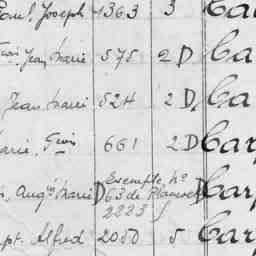 Paul Joseph 1363 3 Ca
Fçois Jean Marie 575 2 D Ca
Jean Marie 524 2 D, Ca
Marie, Fçois 661 2 D Carp
Augtin Marie D Exemple No D Carp
63 de
2223
Bapt. Alfred 2050 5 Carp